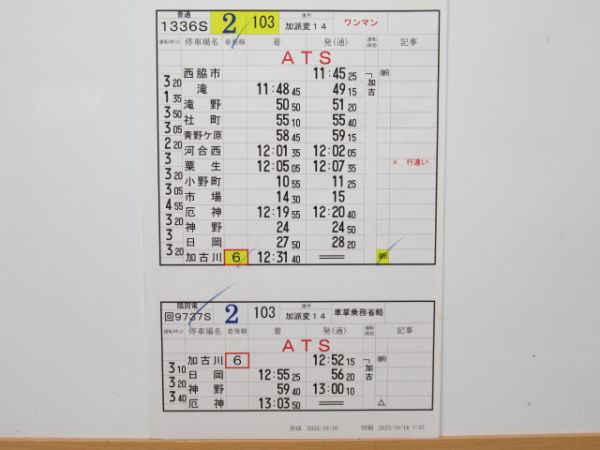 普通 1336S 2 103 運用 加派変14 ワンマン
運転時分 停車場名 着発線 着 発(通) 運転線路 記事
ATS
西脇市 11:45 25 「加古
3 20 滝 11:48 45 49 15
1 35 滝野 50 50 51 20
3 50 社町 55 10 55 40
2 05 青野ケ原 58 45 59 15
2 20 河合西 12:01 35 12:02 05
3 粟生 12:05 05 12:07 35 × 行違い
3 20 小野町 10 55 11 25
3 05 市場 14 30 15
4 55 厄神 12:19 55 12:20 40
3 20 神野 24 24 50
3 日岡 27 50 28 20
3 20 加古川 6 12:31 40
臨回電 回9737S 2 103 運用 加派変14 車掌乗務省略
運転時分 停車場名 着発線 着 発(通) 運転線路 記事
ATS
加古川 6 12:52 15 「加古
3 10 日岡 12:55 25 56 20
3 20 神野 59 40 13:00 10
3 40 厄神 13:03 50 △
作成 2023/10/16 印刷 2023/10/16 7:57